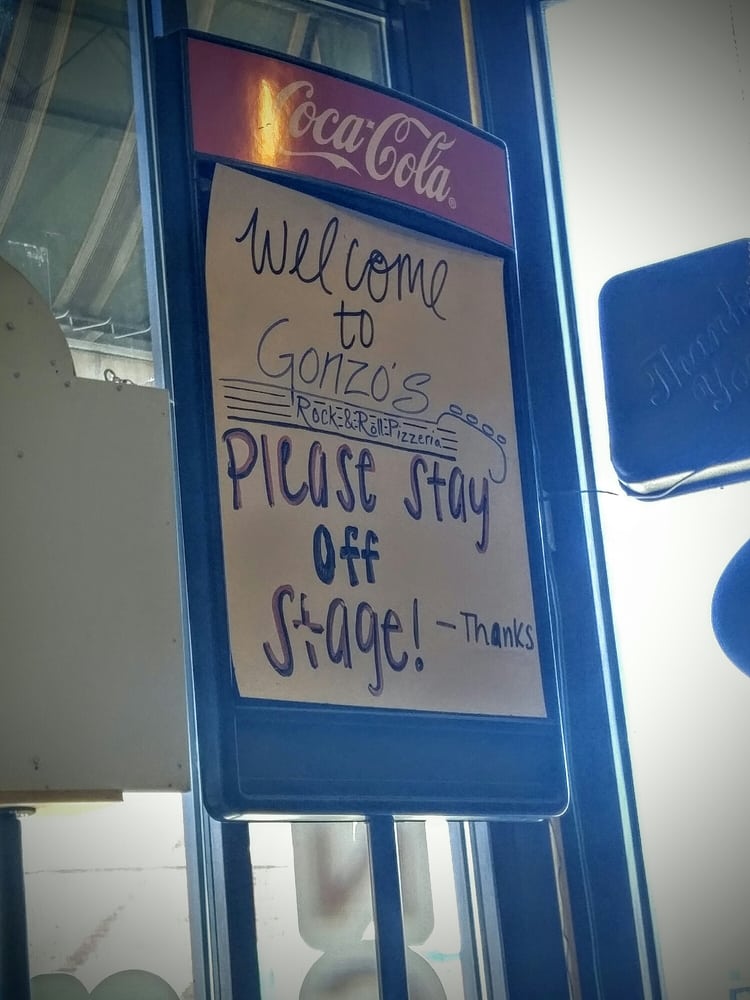 Coca-Cola®
Welcome
to
Gonzo's
Rock & Roll Pizzeria
Please Stay
Off
Stage! - Thanks
Thank
You